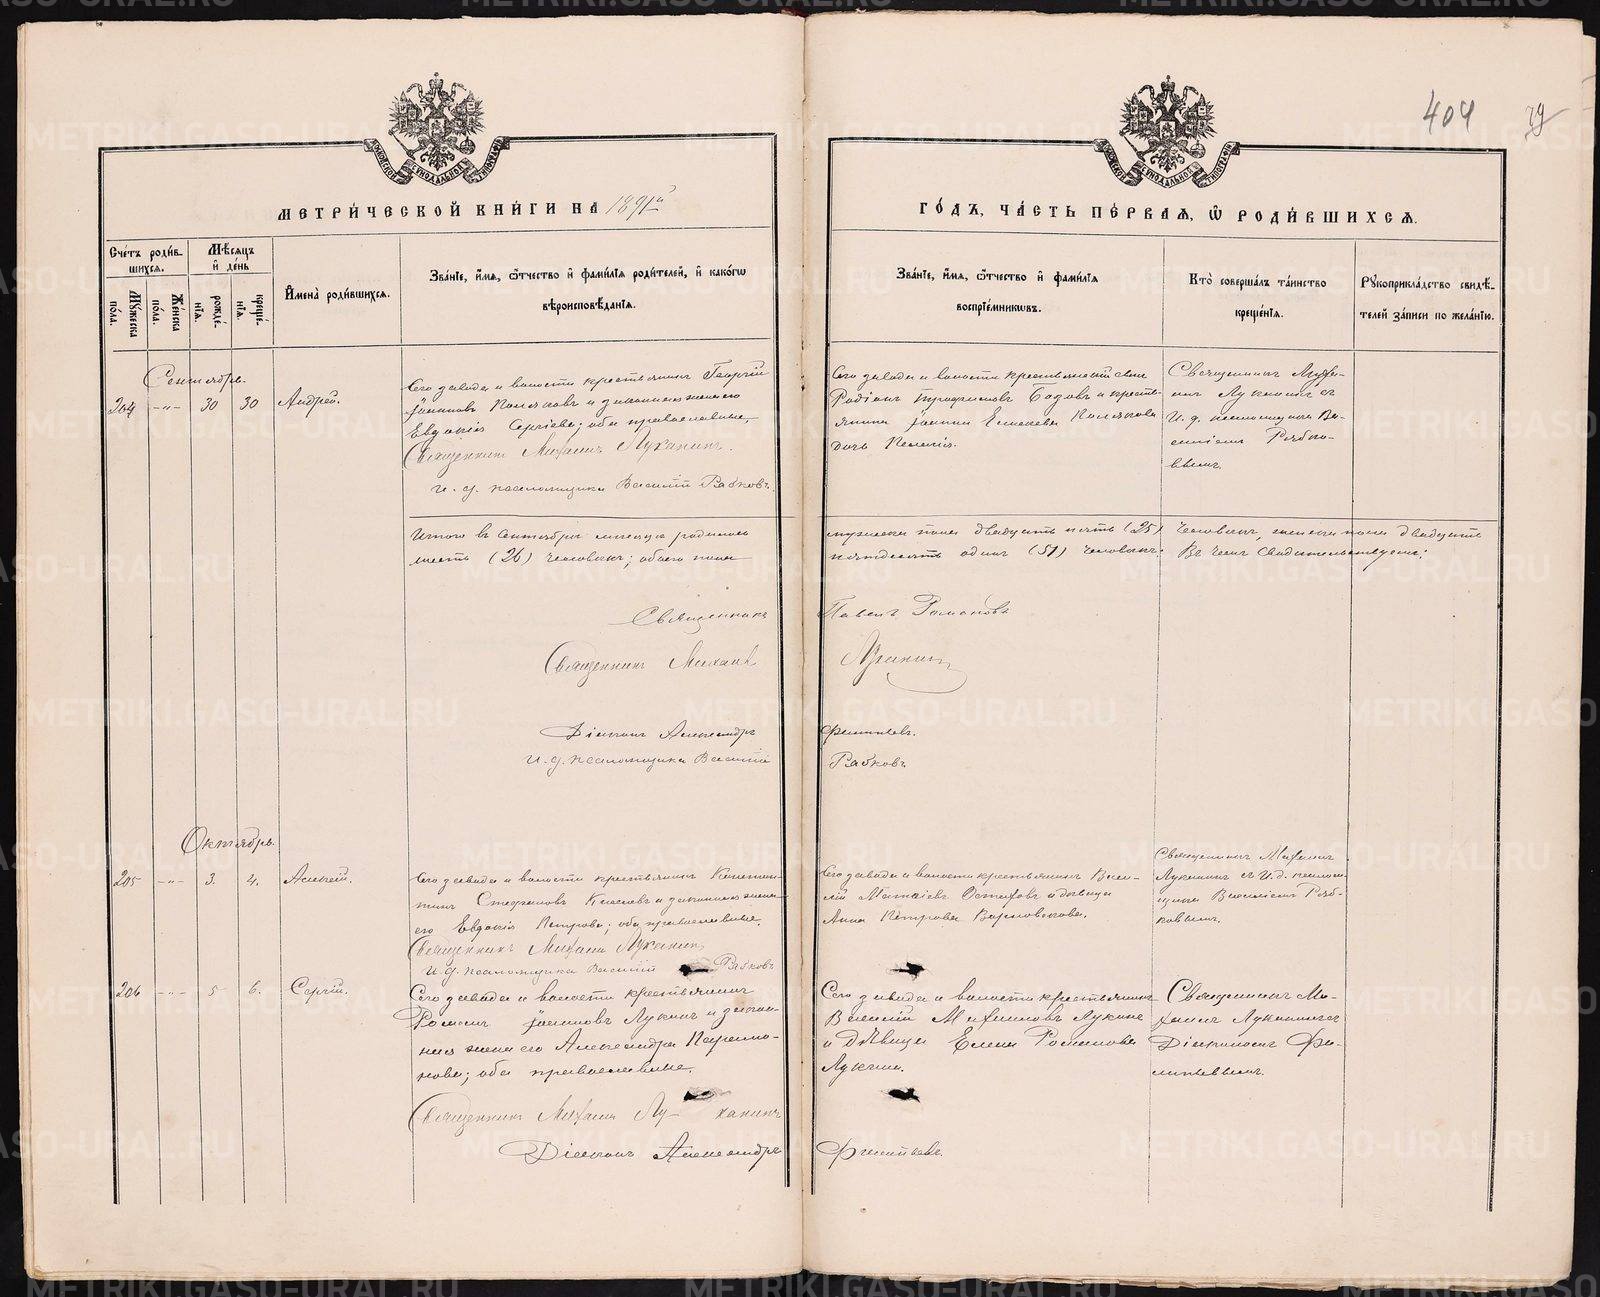 404
79
МОСКОВСКОЙ СѴНОДАЛЬНОЙ ТИПОГРАФІИ
МОСКОВСКОЙ СѴНОДАЛЬНОЙ ТИПОГРАФІИ
МЕТРИ́ЧЕСКОЙ КНИ́ГИ НА 1891й
ГО́ДЪ, ЧА́СТЬ ПЕ́РВАЯ, Ѿ РОДИ́ВШИХСЯ.
Сче́тъ роди́в-
шихся.
Мꙋ́жеска по́ла.
Же́нска по́ла.
Мѣ́сяцъ и҆ де́нь
рожде́-
нїя.
креще́-
нїя.
И҆мена̀ роди́вшихся.
Зва́нїе, и҆́мя, ѻ҆́тчество и҆ фами́лїя роди́телей, и҆ како́гѡ
вѣроисповѣ́данїя.
Зва́нїе, и҆́мя, ѻ҆́тчество и҆ фами́лїя
воспрїе́мникѡвъ.
Кто̀ соверша́лъ та́инство
креще́нїя.
Рꙋкоприкла́дство свидѣ́-
телей за́писи по жела́нїю.
Сентябрь.
204 -"- 30 30 Андрей.
Сего завода и волости крестьянинъ Георгій
Іоанновъ Поляковъ и законная жена его
Евдокія Сергіева; оба православные.
Священникъ Михаилъ Луканинъ.
и. д. псаломщика Василій Рябковъ.
Сего завода и волости крестьянскій сынъ
Родіонъ Трофимовъ и кресть-
янина Іоанна Полякова
дочь
Священникъ Миха-
илъ Луканинъ съ
и. д. псаломщика Ва-
силіемъ Рябко-
вымъ.
Итого въ Сентябрѣ мѣсяцѣ родилось
мужеска пола двадцать пять (25)
человѣкъ, женска пола двадцать
шесть (26) человѣкъ; обоего пола
пятьдесятъ одинъ (51) человѣкъ.
Въ чемъ свидѣтельствуемъ:
Священникъ Павелъ Романовъ
Священникъ Михаилъ Луканинъ
Діаконъ Александръ Филипьевъ.
и. д. псаломщика Василій Рябковъ
Октябрь.
205 -"- 3. 4. Алексій.
Сего завода и волости крестьянинъ Констан-
тинъ Стефановъ и законная жена
его Евдокія Петрова; оба православные.
Священникъ Михаилъ Луканинъ
и. д. псаломщика Василій Рябковъ
Сего завода и волости крестьянинъ Васи-
лій Матѳіевъ и дѣвица
Анна Петрова
Священникъ Михаилъ
Луканинъ съ и. д. псалом-
щика Василіемъ Ряб-
ковымъ.
206 -"- 5 6. Сергій.
Сего завода и волости крестьянинъ
Романъ Іоанновъ Лукинъ и закон-
ная жена его Александра Парамо-
нова; оба православные.
Священникъ Михаилъ Луканинъ
Діаконъ Александръ Филипьевъ.
Сего завода и волости крестьянинъ
Василій Михаиловъ Лукинъ
и дѣвица Елена Романова
Лукина.
Священникъ Ми-
хаилъ Луканинъ съ
Діакономъ Фи-
липьевымъ.
METRIKI.GASO-URAL.RU